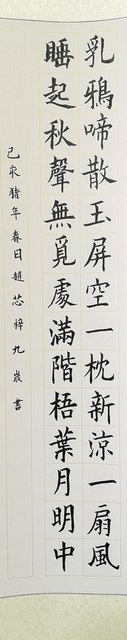 乳鴉啼散玉屏空一枕新涼一扇風
睡起秋聲無覓處滿階梧葉月明中
己亥豬年春日趙芯梓九歲書